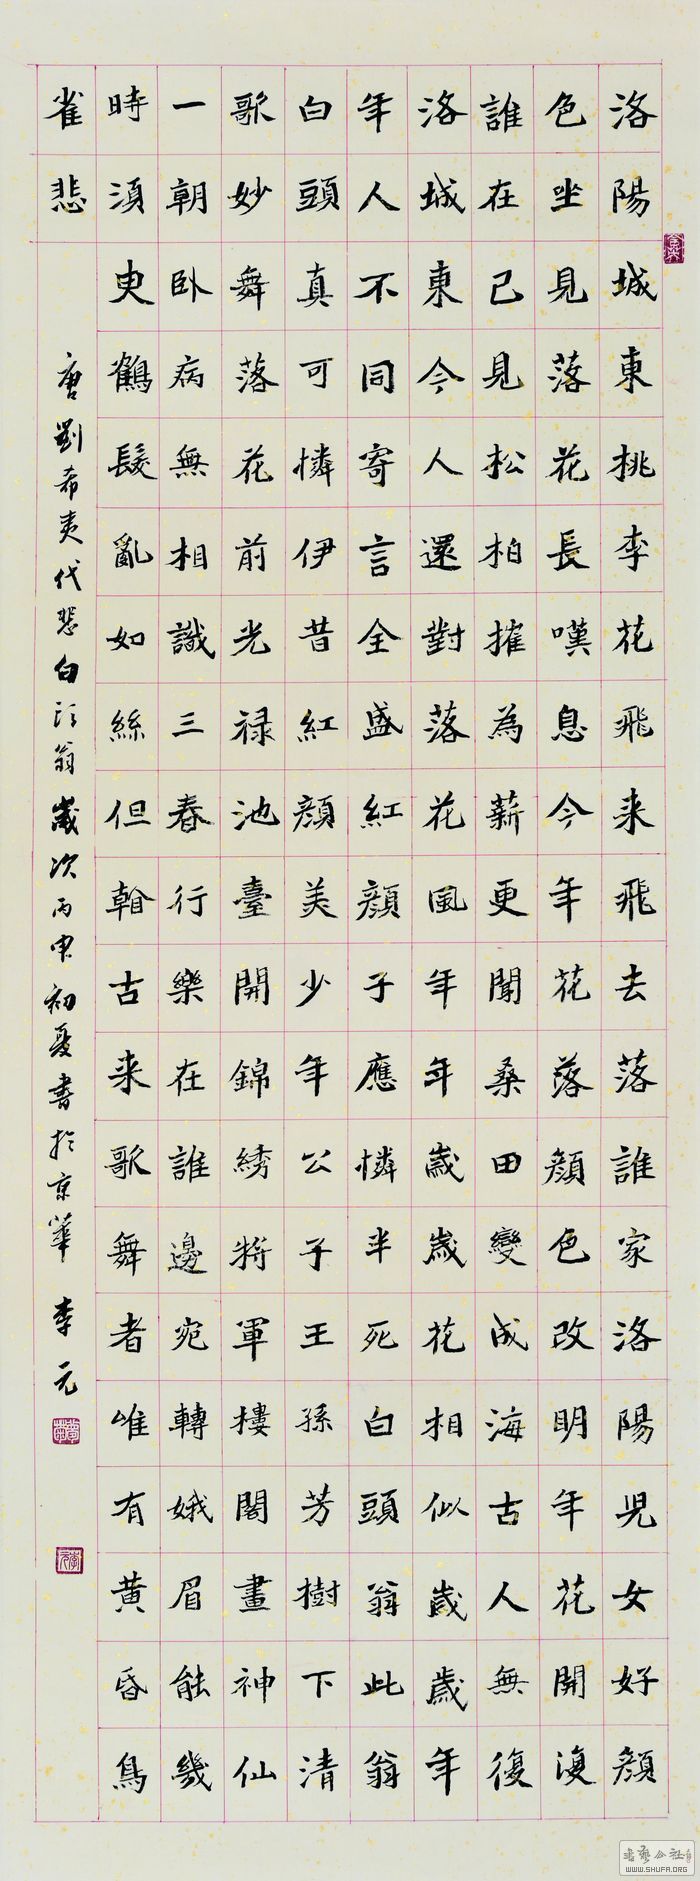 洛陽城東桃李花飛来飛去落誰家洛陽児女好顏
色坐見落花長嘆息今年花落顏色改明年花開復
誰在已見松柏摧為薪更聞桑田變成海古人無復
洛城東今人還對落花風年年歲歲花相似歲歲年
年人不同寄言全盛紅顏子應憐半死白頭翁此翁
白頭真可憐伊昔紅顏美少年公子王孫芳樹下清
歌妙舞落花前光禄池臺開錦綉將軍樓閣畫神仙
一朝卧病無相識三春行樂在誰邊宛轉娥眉能幾
時須臾鶴髮亂如絲但看古来歌舞者唯有黃昏鳥
雀悲
唐劉希夷代悲白頭翁歲次丙申初夏書於京華 李元
WWW.SHUFA.ORG